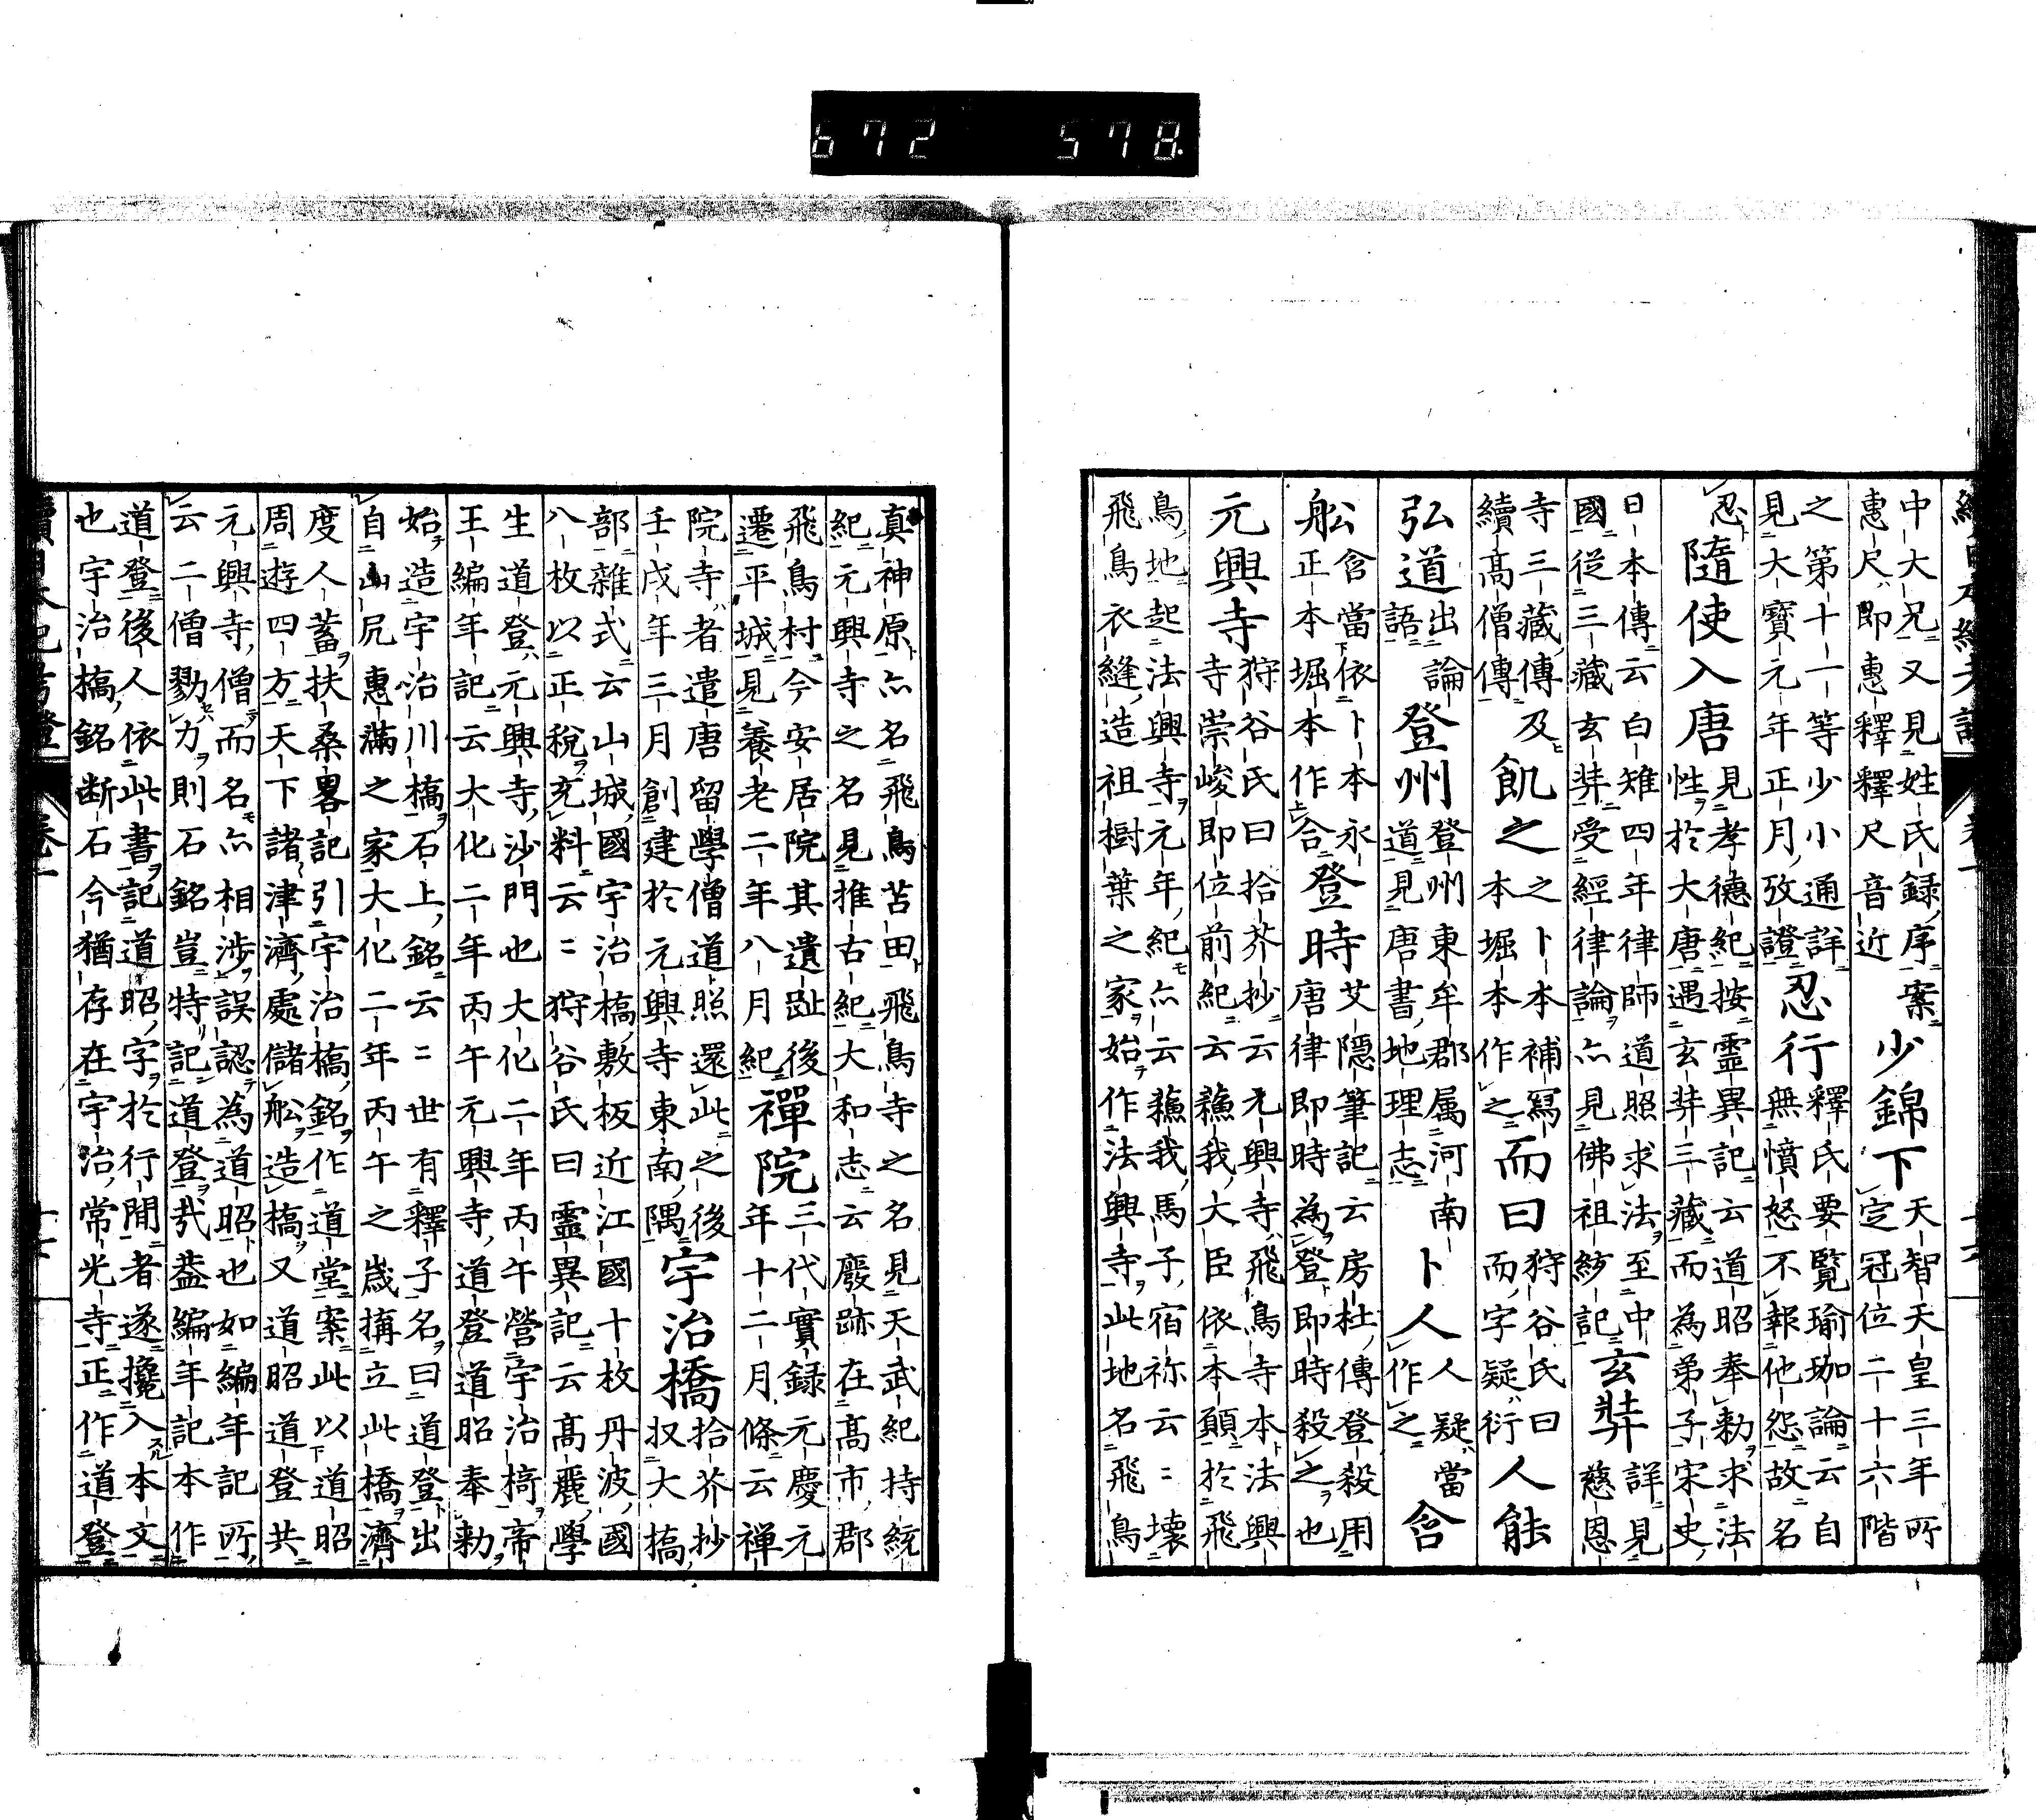 672 578
中大兄又見姓氏録序案
惠尺即惠釋釋尺音近
少錦下
天智天皇三年所
定冠位二十六階
之第十一等少小通詳
見大寶元年正月攷證
忍行
釋氏要覽瑜珈論云自
無憤怒不報他怨故名
忍
隨使入唐
見孝德紀按靈異記云道昭奉勅求法
性於大唐遇玄弉三藏而為弟子宋史
日本傳云白雉四年律師道照求法至中
國從三藏玄弉受經律論亦見佛祖統記
玄弉
詳見
慈恩
寺三藏傳及
續高僧傳
飢之
之卜本補寫
本堀本作之
而曰
狩谷氏曰
而字疑衍
人能
弘道
出論
語
登州
登州東牟郡属河南
道見唐書地理志
卜人
人疑當
作之
含
舩
含當依卜本永
正本堀本作合
登時
艾隱筆記云房杜傳登殺用
唐律即時為登即時殺之也
元興寺
狩谷氏曰拾芥抄云元興寺飛鳥寺本法興
寺崇峻即位前紀云蘓我大臣依本願於飛
鳥地起法興寺元年紀亦云蘓我馬子宿祢云〻壊
飛鳥衣縫造祖樹葉之家始作法興寺此地名飛鳥
真神原亦名飛鳥苫田飛鳥寺之名見天武紀持統
紀元興寺之名見推古紀大和志云廢跡在高市郡
飛鳥村今安居院其遺趾後
遷平城見養老二年八月紀
禪院
三代實録元慶元
年十二月條云禅
院寺者遣唐留學僧道照還此之後
壬戌年三月創建於元興寺東南隅
宇治橋
拾芥抄
収大槗
部雑式云山城國宇治槗敷板近江國十枚丹波國
八枚以正税充料云〻狩谷氏曰靈異記云高麗學
生道登元興寺沙門也大化二年丙午營宇治槗帝
王編年記云大化二年丙午元興寺道登道昭奉勅
始造宇治川槗石上銘云〻世有釋子名曰道登出
自山尻惠滿之家大化二年丙午之歳搆立此橋濟
度人蓄扶桑畧記引宇治槗銘作道堂案此以道昭
周遊四方天下諸津濟處儲舩造槗又道昭道登共
元興寺僧而名亦相渉誤認為道昭也如編年記所
云二僧勠力則石銘豈特記道登哉葢編年記本作
道登後人依此書記道昭字於行間者遂攙入本文
也宇治槗銘断石今猶存在宇治常光寺正作道登